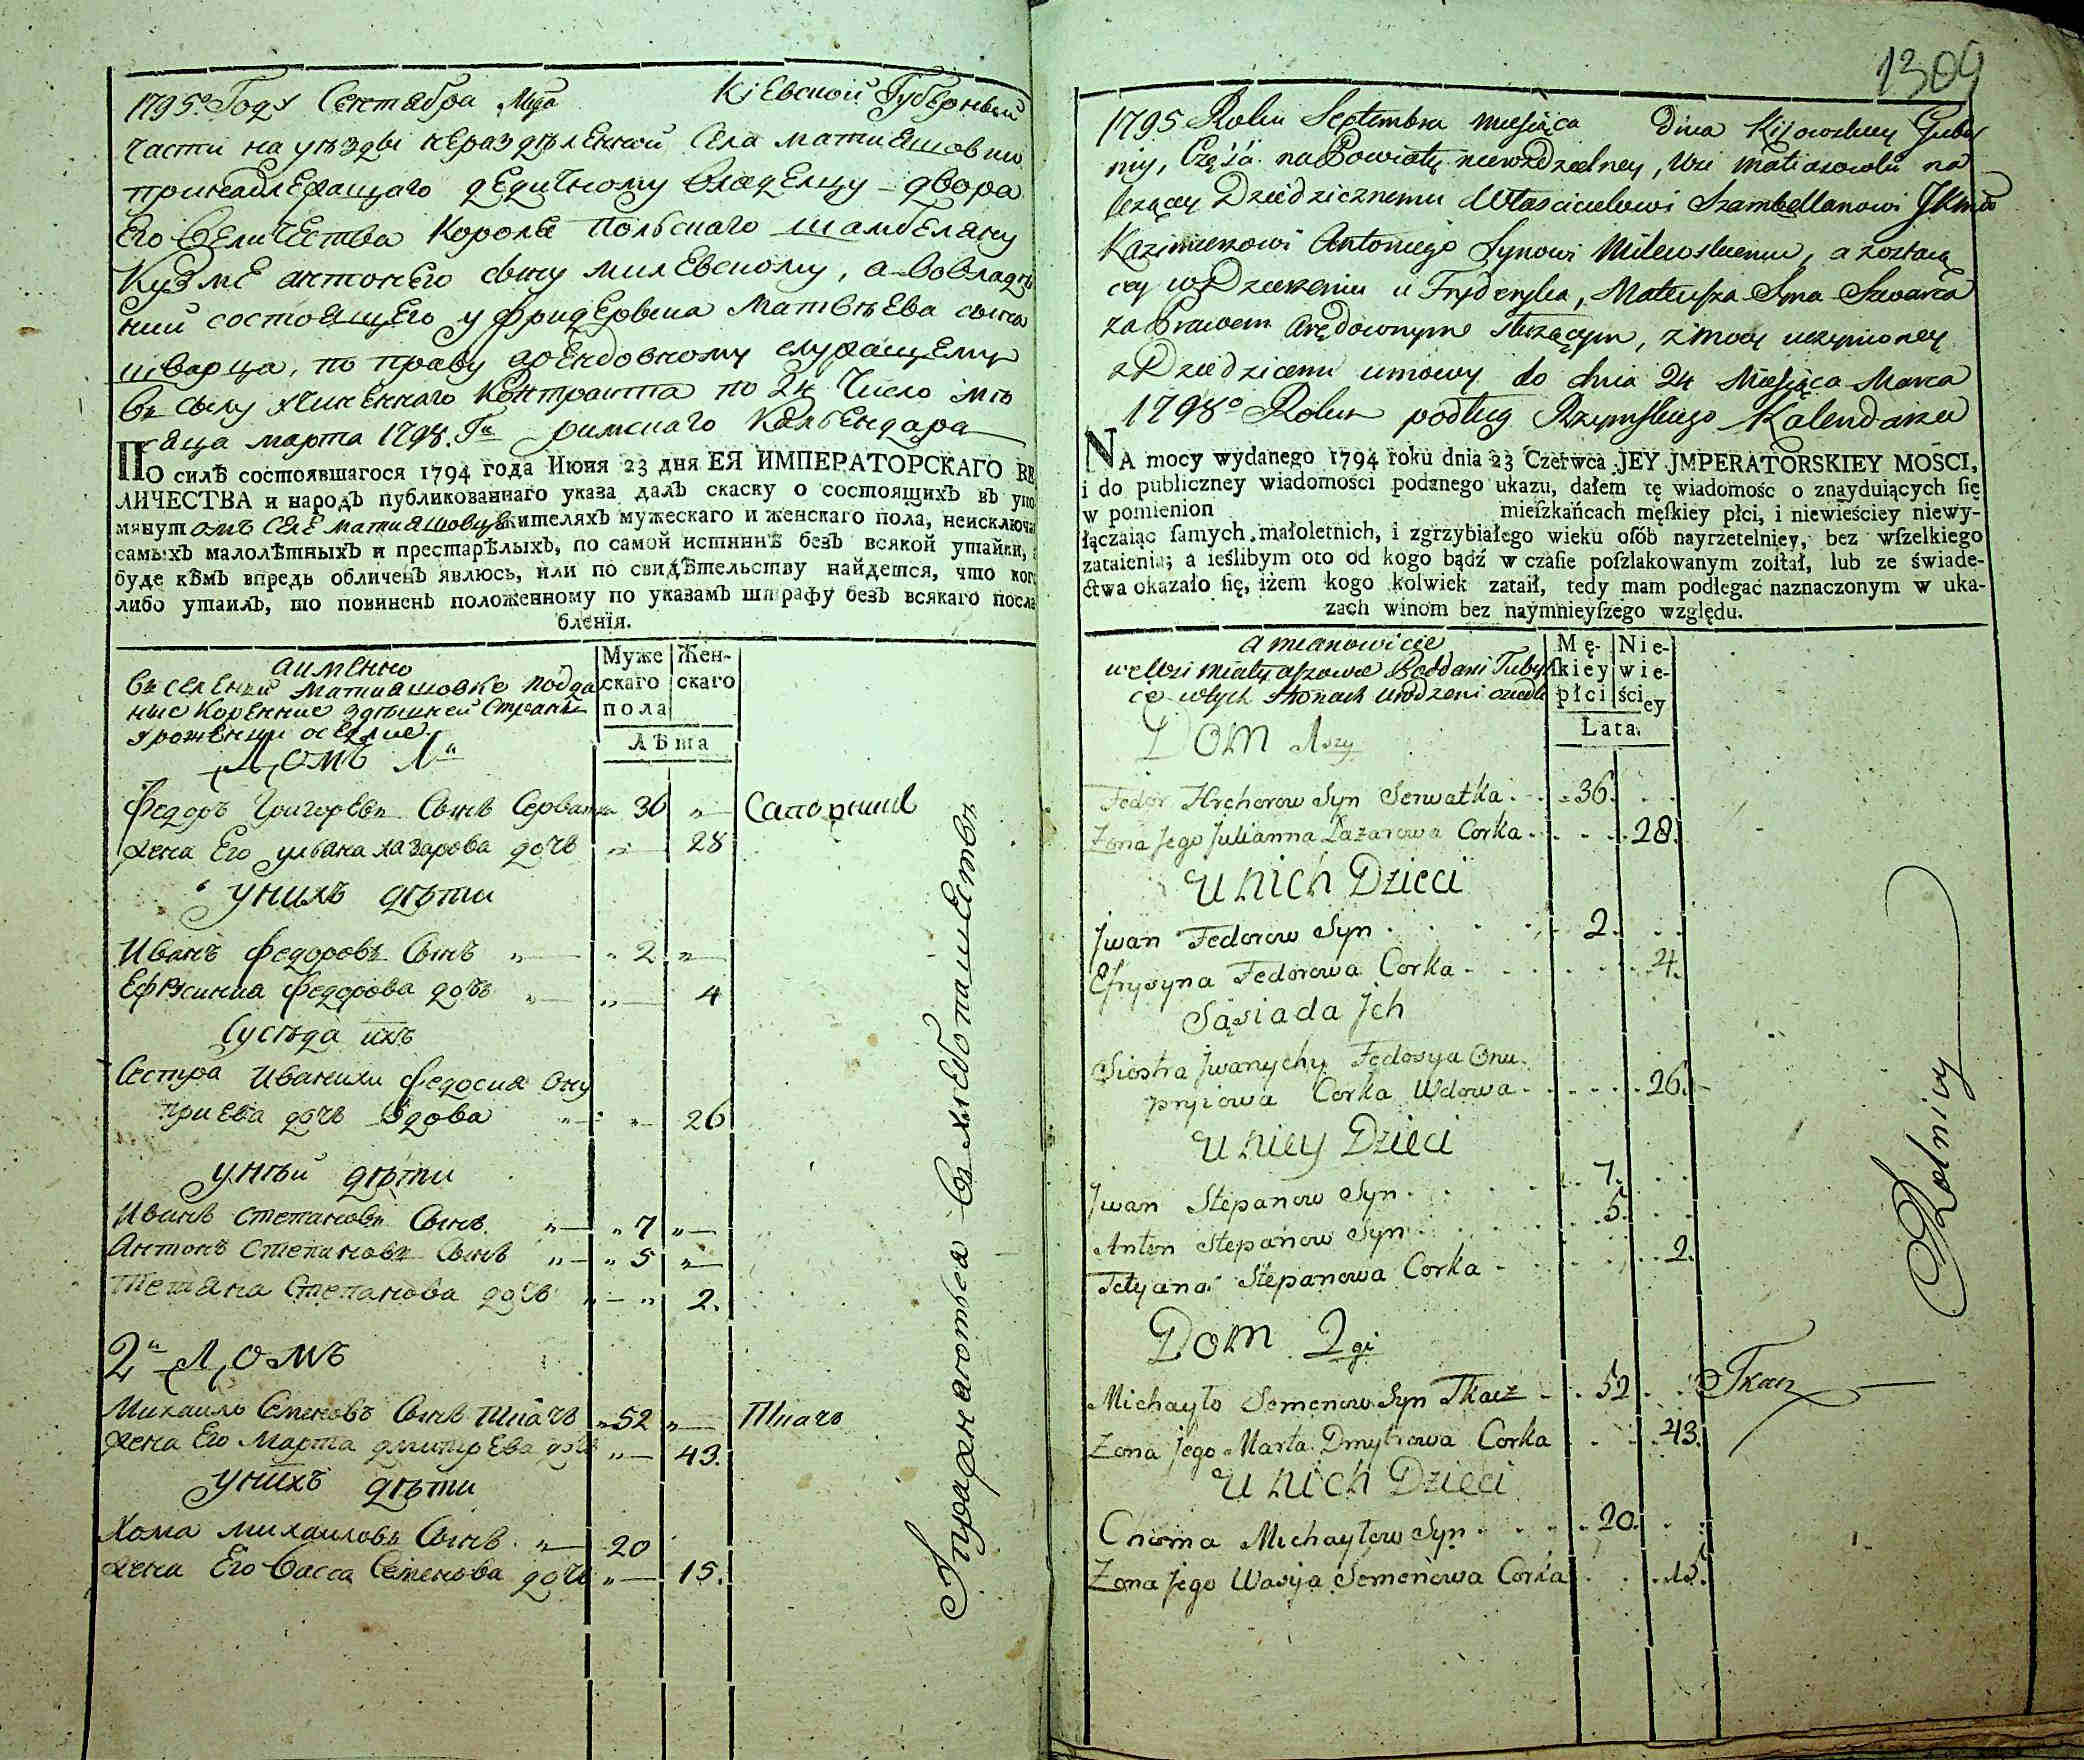 1795º Году Сентября Мца Кіевской Губерніи
части на уѣзды нераздѣленной Села Матиашовки
принадлежащаго дедичному владелцу двора
Его Величества Короля Польскаго шамбеляну
Кузме антонего сыну милевскому, а во владѣ
нии состоящего у фридерика Матвѣева сына
шварца, по праву арендовному служащему
въ силу учиненнаго Контракта по 24 Число мѣ
сяца марта 1798. Гᵒ римскаго Календара
ПО силѣ состоявшагося 1794 года Июня 23 дня ЕЯ ИМПЕРАТОРСКАГО ВЕ
ЛИЧЕСТВА и народъ публикованнаго указа далъ скаску о состоящихъ въ упо
мянутомъ селе матиашовце жителяхъ мужескаго и женскаго пола, неисключа
самыхъ малолѣтныхъ и престарѣлыхъ, по самой истиннѣ безъ всякой утайки,
буде кѣмъ впредь обличенъ явлюсь, или по свидѣтельству найдется, что кого
либо утаилъ, то повиненъ положенному по указамъ штрафу безъ всякаго посла
бленія.
аименно
въ селении матиашовке подда
ние коренние здѣшней страни
урожении оседлие
Муже скаго пола
Жен- скаго
Лѣта
Домъ 1ᵘ
Федоръ Григоревъ Сынъ Серватка 36 „ Сапорники
жена Его улияна лазарова дочь „ 28
унихъ дѣти
Иванъ федоровъ Сынъ „ 2 „
Ефросиниа федорова дочъ „ „ 4
Сусѣда ихъ
Сестра Иванихи федосия Ону
приева дочь вдова „ „ 26
унѣй дѣти
Иванъ степановъ Сынъ „ 7 „
Антонъ степановъ Сынъ „ 5 „
Тетяна Степанова дочь „ „ 2.
2ᵘ Домъ
Михаило Семеновъ Сынъ Ткачъ „ 52 „ Ткачъ
жена Его Марта дмитрева дочь „ 43.
унихъ дѣти
Хома михаиловъ Сынъ „ 20
жена Его Васса Семенова дочь „ 15.
Упражняются въ хлебопашествѣ
1309
1795 Roku Septembra miesiąca Dnia Kijowskiey Guber
nij, Część na Powiaty nierozdzielney, Wsi Matiaszowki na
leżącey Dziedzicznemu Własciciełowi Szambellanowi JKmci
Kazimierzowi Antoniego Synowi Milewskiemu, a zostaią
cey w Dzierzeniu u Fryderyka, Mateusza Syna Szwarca
za Prawem Arędownym służącym, z mocy uczynioney
z Dziedzicem umowy do dnia 24 Miesiąca Marca
1798º Roku podług Rzymskiego Kalendarza
NA mocy wydanego 1794 roku dnia 23 Czerwca JEY JMPERATORSKIEY MOŚCI,
i do publiczney wiadomości podanego ukazu, dałem tę wiadomośc o znayduiących ſię
w pomienion mieſzkańcach męſkiey płci, i niewieściey niewy-
łączaiąc ſamych małoletnich, i zgrzybiałego wieku oſób nayrzetelniey, bez wſzelkiego
zataienia; a ieślibym oto od kogo bądź w czaſie poſzlakowanym zoſtał, lub ze świade-
ctwa okazało ſię, iżem kogo kolwiek zataił, tedy mam podlegac naznaczonym w uka-
zach winom bez naymnieyſzego względu.
a mianowicie
we Wsi Matyaszowce Poddani Tuby
ce w tych stronach urodzeni osiedli
Mę- ſkiey płci
Nie- wie- ściey
Lata.
Dom 1szy
Fedor Hrehorow Syn Serwatka 36.
Zona jego Julianna Lazarowa Corka 28.
U nich Dzieci
Jwan Fedorow Syn 2.
Efrysyna Fedorowa Corka 4.
Sąsiada Jch
Siostra Jwanychy Fedosya Onu
pryiowa Corka Wdowa 26.
U niey Dzieci
Jwan Stepanow Syn 7.
Anton Stepanow Syn 5.
Tetyana Stepanowa Corka 2.
Dom 2gi
Michayło Semenow Syn Tkacz 52 Tkacz
Zona jego Marta Dmytrowa Corka 43.
U nich Dzieci
Choma Michayłow Syn 20.
Zona jego Wasya Semenowa Corka 15.
Rolnicy